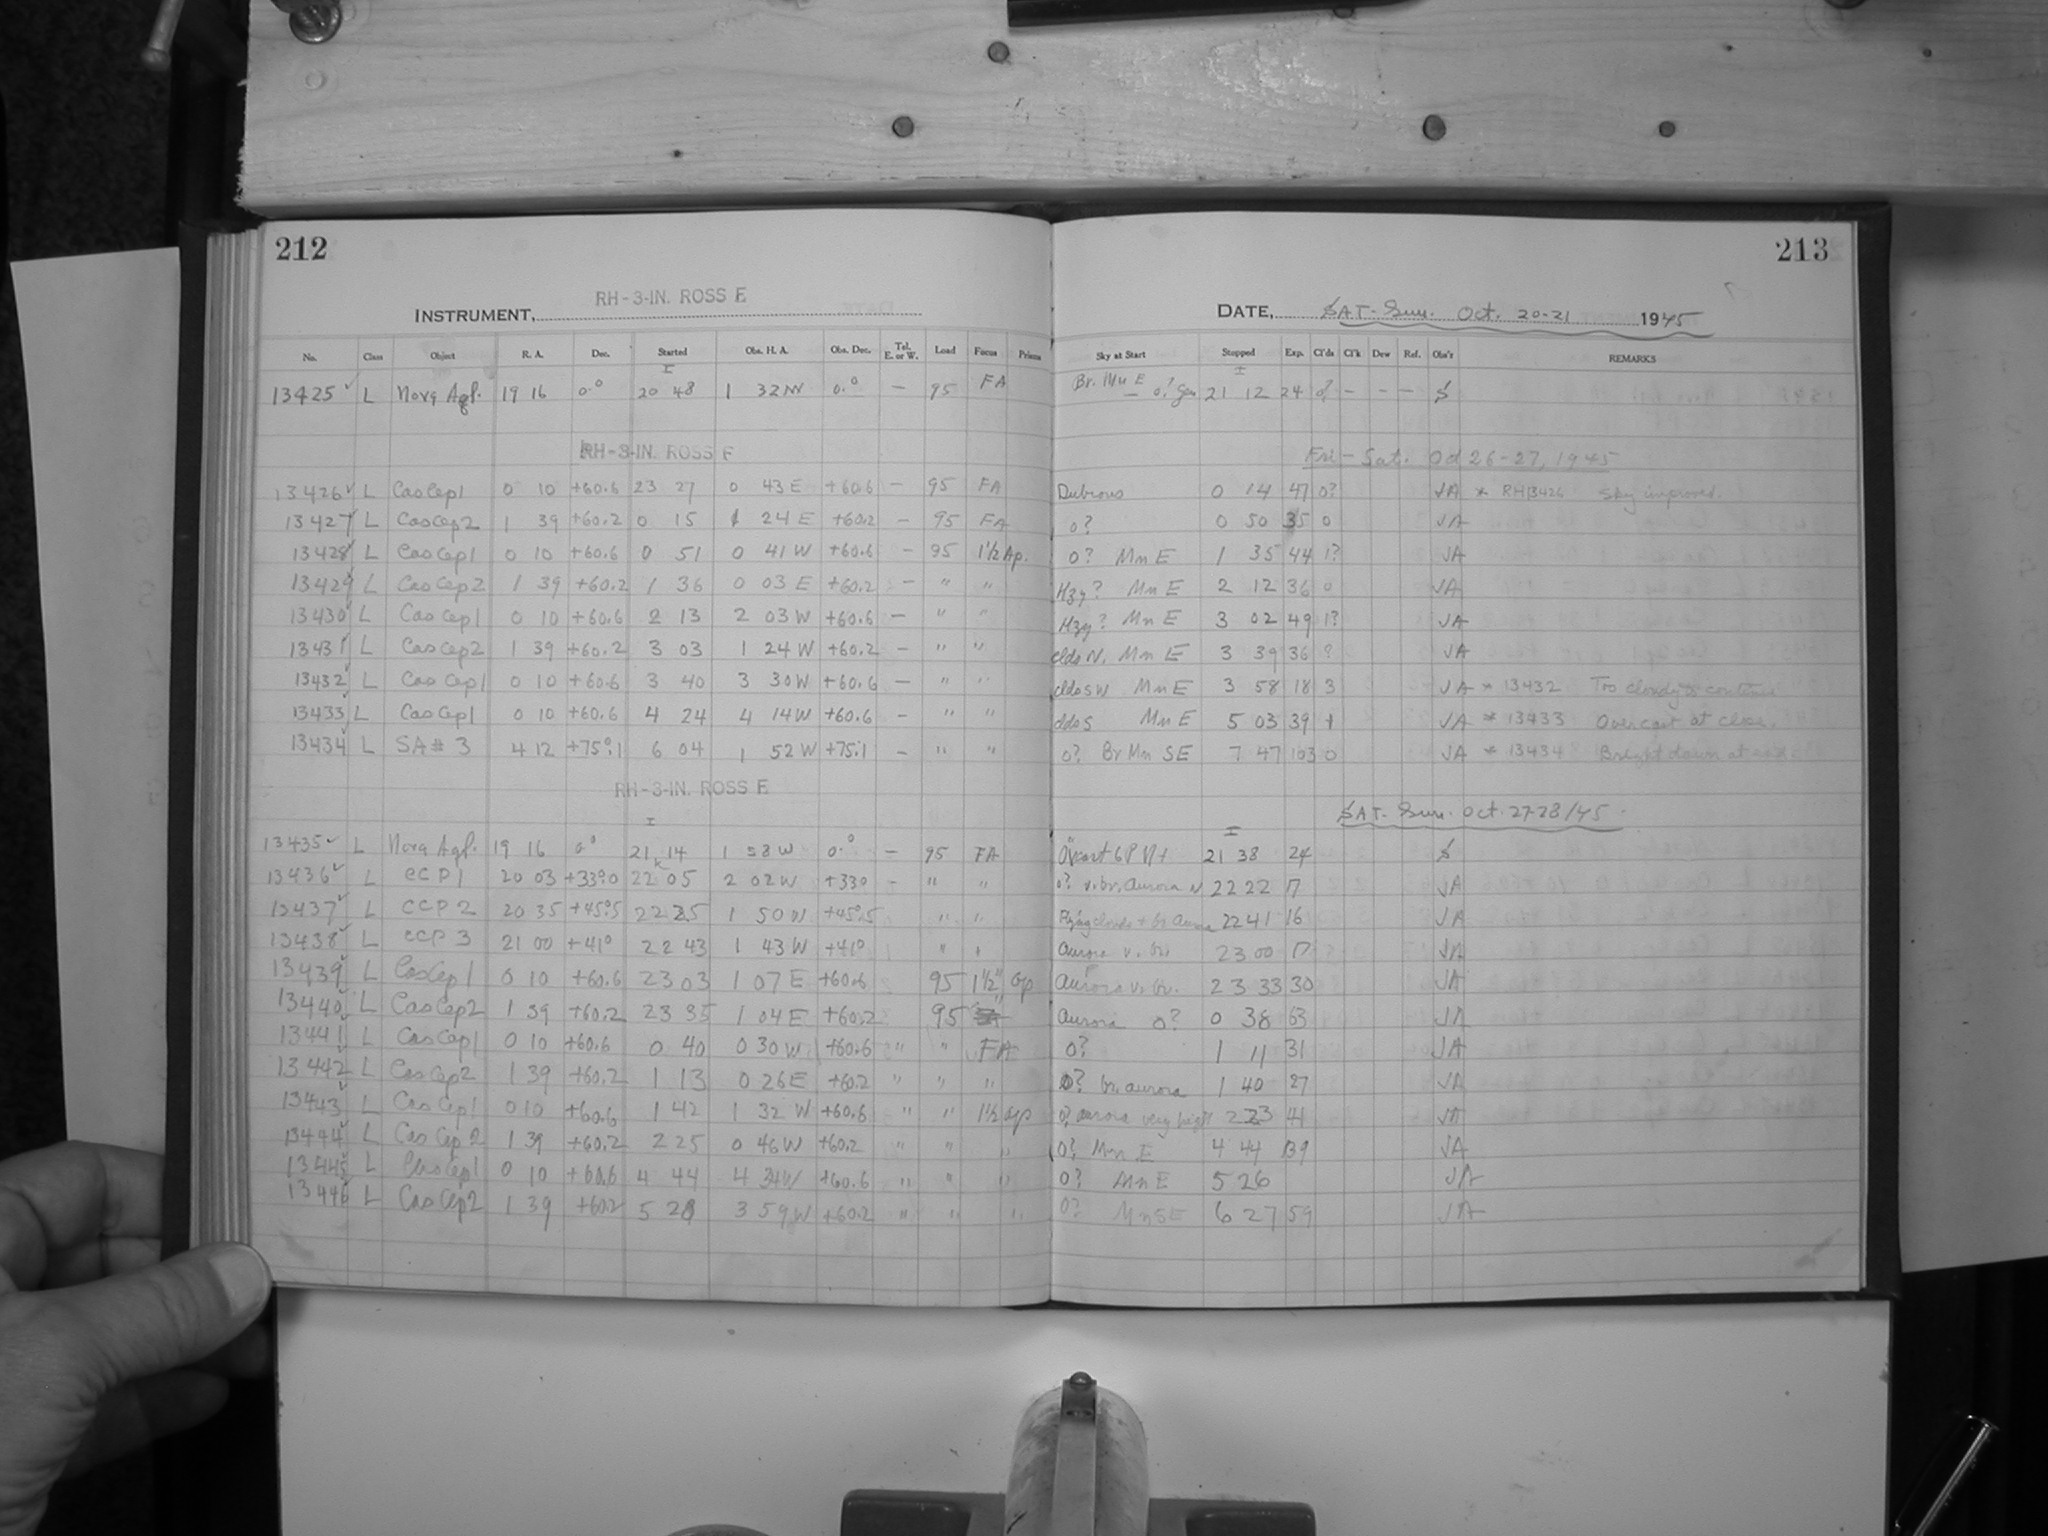 212
213
INSTRUMENT, RH-3-IN. ROSS F
DATE, SAT-Sun. Oct. 20-21 1945
No. Class Object R. A. Dec. Started Obs. H. A. Obs. Dec. Tel. E. or W. Load Focus Prisms Sky at Start Stopped Exp. Cl'ds Cl'k Dew Ref. Obs'r REMARKS
13425 L Nova Aql. 19 16 0.° 20 48 1 32W 0.° — 95 FA Br. Mn E 21 12 24 0? — — — S
RH-3-IN. ROSS F
Fri-Sat. Oct 26-27, 1945
13426 L CasCep1 0 10 +60.6 23 27 0 43 E +60.6 — 95 FA Dubious 0 14 47 0? JA * RH13426 Sky improved.
13427 L CasCep2 1 39 +60.2 0 15 1 24 E +60.2 — 95 FA 0? 0 50 35 0 JA
13428 L CasCep1 0 10 +60.6 0 51 0 41 W +60.6 — 95 1½ Ap. 0? Mn E 1 35 44 1? JA
13429 L CasCep2 1 39 +60.2 1 36 0 03 E +60.2 — " " Hzy? Mn E 2 12 36 0 JA
13430 L CasCep1 0 10 +60.6 2 13 2 03 W +60.6 — " " Hzy? Mn E 3 02 49 1? JA
13431 L CasCep2 1 39 +60.2 3 03 1 24 W +60.2 — " " clds N. Mn E 3 39 36 ? JA
13432 L CasCep1 0 10 +60.6 3 40 3 30W +60.6 — " " clds SW Mn E 3 58 18 3 JA * 13432 Too cloudy to continue
13433 L CasCep1 0 10 +60.6 4 24 4 14W +60.6 — " " clds S Mn E 5 03 39 + JA * 13433 Overcast at close.
13434 L SA# 3 4 12 +75°.1 6 04 1 52 W +75.1 — " " 0? Br Mn SE 7 47 103 0 JA * 13434 Bright dawn at
RH-3-IN. ROSS F
SAT-Sun. Oct. 27-28/45
13435 L Nova Aql. 19 16 0° 21 14 1 58 W 0.° — 95 FA 21 38 24 S
13436 L CCP1 20 03 +33°.0 22 05 2 02W +330 - " " 0? v. br. Aurora N 22 22 17 JA
13437 L CCP 2 20 35 +45°.5 22 25 1 50 W +45°.5 " " Flying clouds + br. Aurora 22 41 16 JA
13438 L CCP 3 21 00 +41° 22 43 1 43 W +41° " Aurora v. br. 23 00 17 JA
13439 L CasCep1 0 10 +60.6 23 03 1 07 E +60.6 95 1½" ap Aurora v. br. 23 33 30 JA
13440 L CasCep2 1 39 +60.2 23 35 1 04 E +60.2 95 " Aurora 0? 0 38 63 JA
13441 L CasCep1 0 10 +60.6 0 40 0 30 W +60.6 " " FA 0? 1 11 31 JA
13442 L CasCep2 1 39 +60.2 1 13 0 26 E +60.2 " " " 0? br. aurora 1 40 27 JA
13443 L CasCep1 0 10 +60.6 1 42 1 32 W +60.6 " " 1½ ap 0? aurora very bright 2 23 41 JA
13444 L CasCep2 1 39 +60.2 2 25 0 46 W +60.2 " " " 0? Mn E 4 44 139 JA
13445 L CasCep1 0 10 +60.6 4 44 4 34W +60.6 " " " 0? Mn E 5 26 JA
13446 L CasCep2 1 39 +60.2 5 28 3 59W +60.2 " " " 0? Mn SE 6 27 59 JA